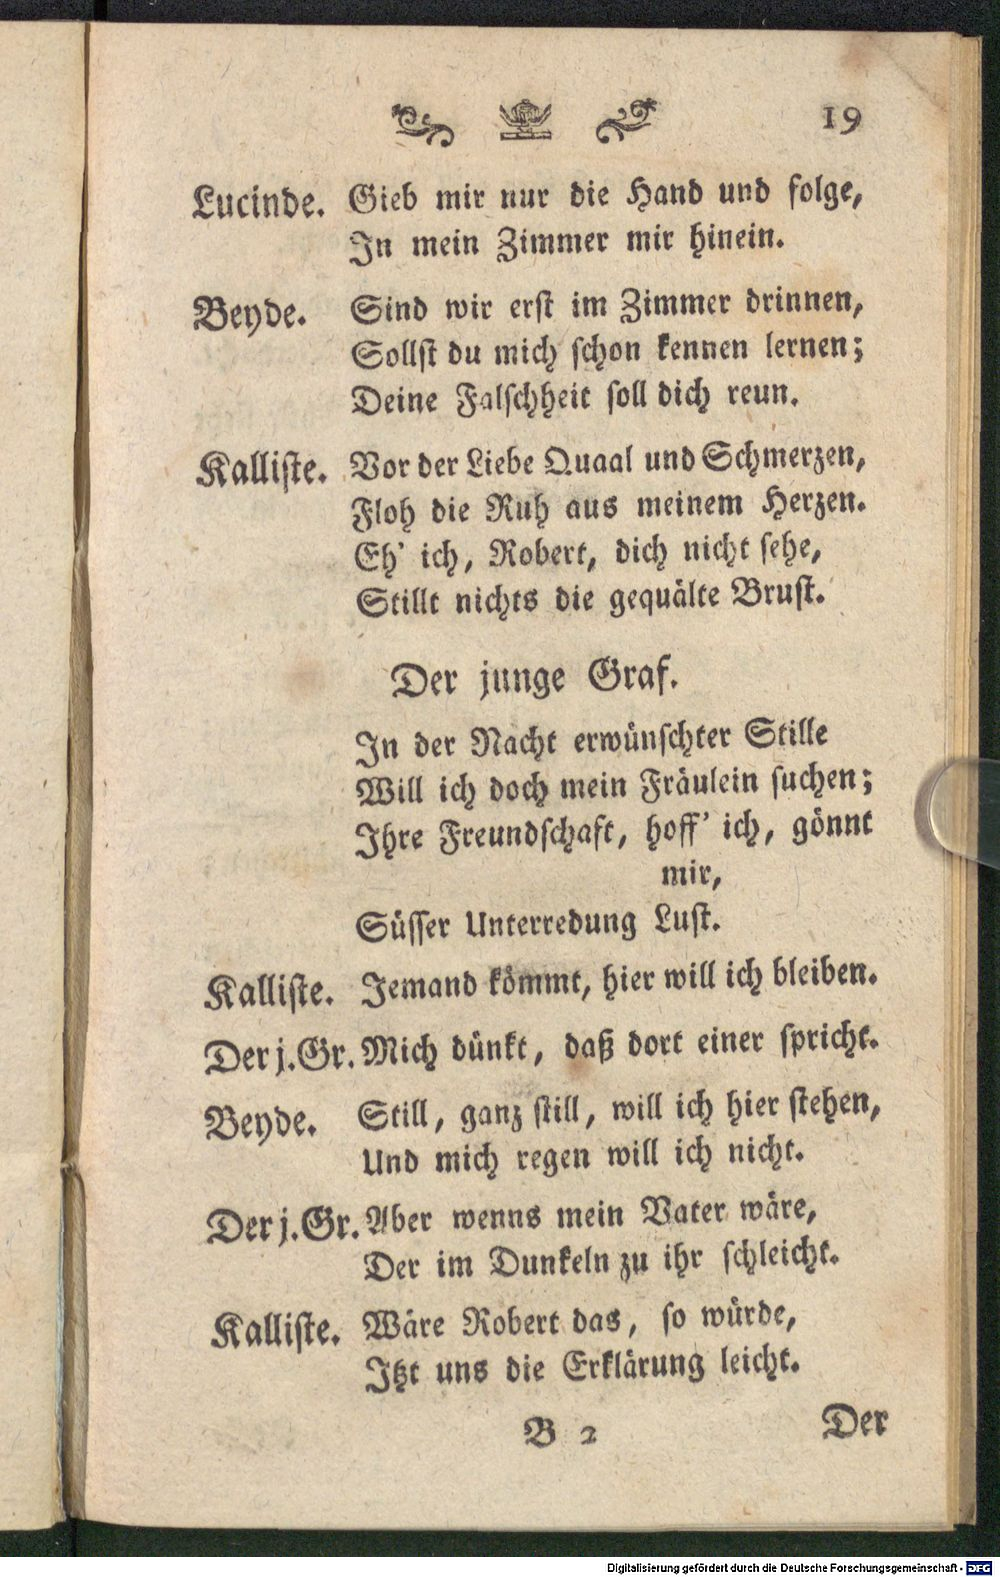 19
Lucinde. Gieb mir nur die Hand und folge,
In mein Zimmer mir hinein.
Beyde. Sind wir erst im Zimmer drinnen,
Sollst du mich schon kennen lernen;
Deine Falschheit soll dich reun.
Kalliste. Vor der Liebe Quaal und Schmerzen,
Floh die Ruh aus meinem Herzen.
Eh' ich, Robert, dich nicht sehe,
Stillt nichts die gequälte Brust.
Der junge Graf.
In der Nacht erwünschter Stille
Will ich doch mein Fräulein suchen;
Ihre Freundschaft, hoff' ich, gönnt
mir,
Süsser Unterredung Lust.
Kalliste. Jemand kömmt, hier will ich bleiben.
Der j. Gr. Mich dünkt, daß dort einer spricht.
Beyde. Still, ganz still, will ich hier stehen,
Und mich regen will ich nicht.
Der j. Gr. Aber wenns mein Vater wäre,
Der im Dunkeln zu ihr schleicht.
Kalliste. Wäre Robert das, so würde,
Itzt uns die Erklärung leicht.
B 2 Der
Digitalisierung gefördert durch die Deutsche Forschungsgemeinschaft - DFG